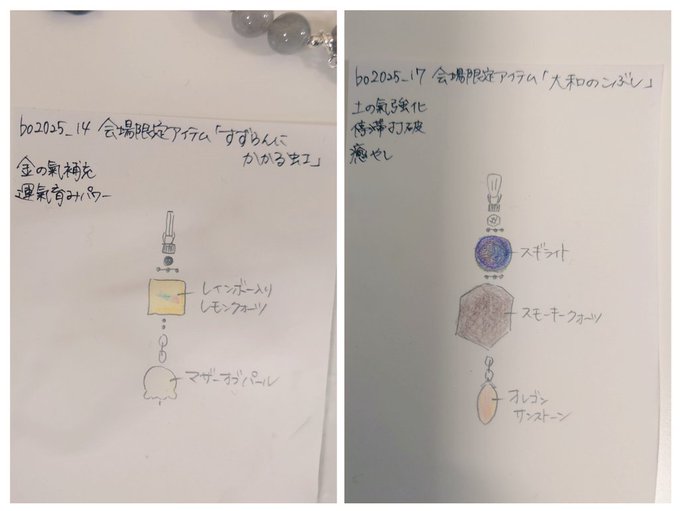 bo2025_14 会場限定アイテム「すずらんに
かかる虹」
金の氣補充
運氣育みパワー
レインボー入り
レモンクォーツ
マザーオブパール
bo2025_17 会場限定アイテム「大和のこぶし」
土の氣強化
停滞打破
癒やし
スギライト
スモーキークォーツ
オレゴン
サンストーン